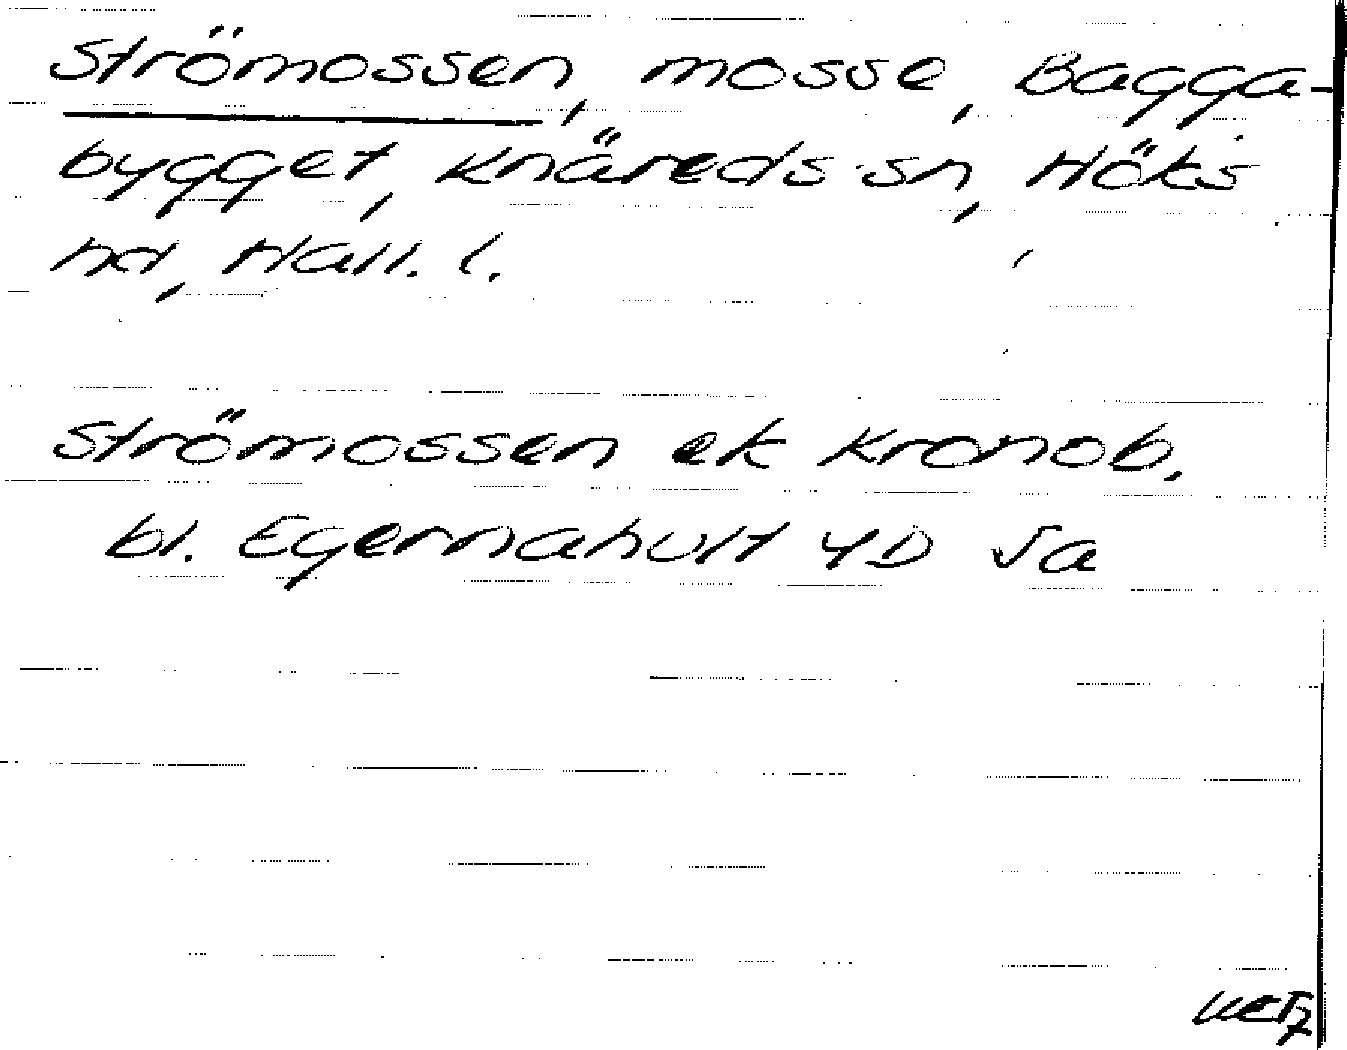 Strömossen, mosse, Bagga-
bygget, Knäreds sn, Höks
hd, Hall. l.
Strömossen ek Kronob.
bl. Egernahult 4D